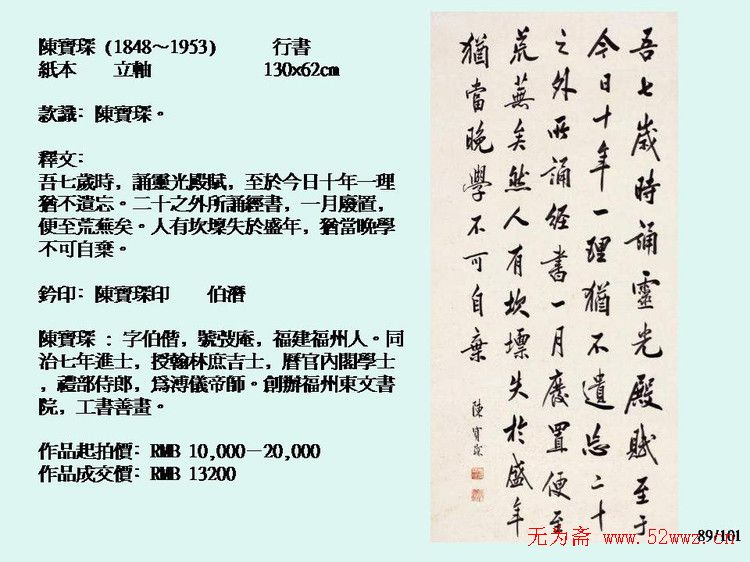 陳寶琛 (1848～1953) 行書
紙本 立軸 130x62cm
款識: 陳寶琛。
釋文:
吾七歲時, 誦靈光殿賦, 至於今日十年一理
猶不遺忘。二十之外所誦經書, 一月廢置,
便至荒蕪矣。人有坎壈失於盛年, 猶當晚學
不可自棄。
鈐印: 陳寶琛印 伯潛
陳寶琛 : 字伯偕, 號弢庵, 福建福州人。同
治七年進士, 授翰林庶吉士, 曆官內閣學士
, 禮部侍郎, 為溥儀帝師。創辦福州東文書
院, 工書善畫。
作品起拍價: RMB 10,000－20,000
作品成交價: RMB 13200
吾七歲時誦靈光殿賦至于
今日十年一理猶不遺忘二十
之外所誦經書一月廢置便至
荒蕪矣然人有坎壈失於盛年
猶當晚學不可自棄
陳寶琛
无为斋 www.52wwz.cn
89/101